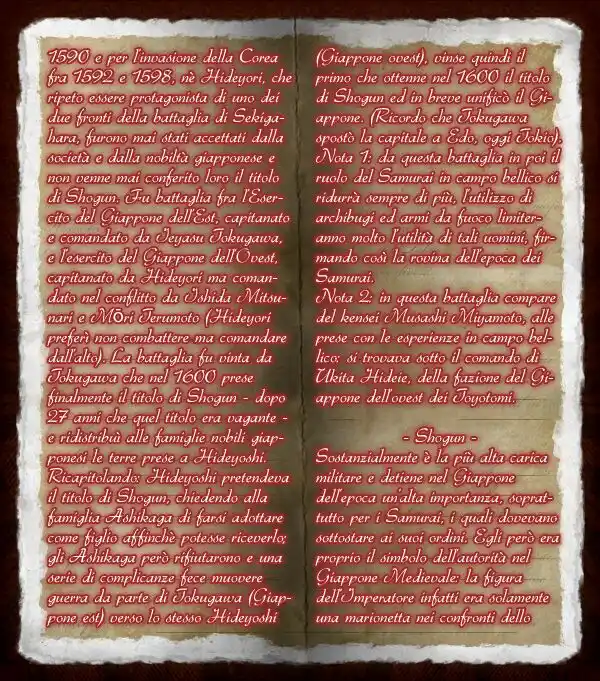 1590 e per l'invasione della Corea
fra 1592 e 1598, nè Hideyori, che
ripeto essere protagonista di uno dei
due fronti della battaglia di Sekiga-
hara, furono mai stati accettati dalla
società e dalla nobiltà giapponese e
non venne mai conferito loro il titolo
di Shogun. Fu battaglia fra l'Eser-
cito del Giappone dell'Est, capitanato
e comandato da Ieyasu Tokugawa,
e l'esercito del Giappone dell'Ovest,
capitanato da Hideyori ma coman-
dato nel conflitto da Ishida Mitsu-
nari e Mōri Terumoto (Hideyori
preferì non combattere ma comandare
dall'alto). La battaglia fu vinta da
Tokugawa che nel 1600 prese
finalmente il titolo di Shogun - dopo
27 anni che quel titolo era vagante -
e ridistribuì alle famiglie nobili giap-
ponesi le terre prese a Hideyoshi.
Ricapitolando: Hideyoshi pretendeva
il titolo di Shogun, chiedendo alla
famiglia Ashikaga di farsi adottare
come figlio affinchè potesse riceverlo;
gli Ashikaga però rifiutarono e una
serie di complicanze fece muovere
guerra da parte di Tokugawa (Giap-
pone est) verso lo stesso Hideyoshi
(Giappone ovest), vinse quindi il
primo che ottenne nel 1600 il titolo
di Shogun ed in breve unificò il Gi-
appone. (Ricordo che Tokugawa
spostò la capitale a Edo, oggi Tokio).
Nota 1: da questa battaglia in poi il
ruolo del Samurai in campo bellico si
ridurrà sempre di più, l'utilizzo di
archibugi ed armi da fuoco limiter-
anno molto l'utilità di tali uomini, fir-
mando così la rovina dell'epoca dei
Samurai.
Nota 2: in questa battaglia compare
del kensei Musashi Miyamoto, alle
prese con le esperienze in campo bel-
lico; si trovava sotto il comando di
Ukita Hideie, della fazione del Gi-
appone dell'ovest dei Toyotomi.

- Shogun -
Sostanzialmente è la più alta carica
militare e detiene nel Giappone
dell'epoca un'alta importanza, soprat-
tutto per i Samurai, i quali dovevano
sottostare ai suoi ordini. Egli però era
proprio il simbolo dell'autorità nel
Giappone Medievale: la figura
dell'Imperatore infatti era solamente
una marionetta nei confronti dello